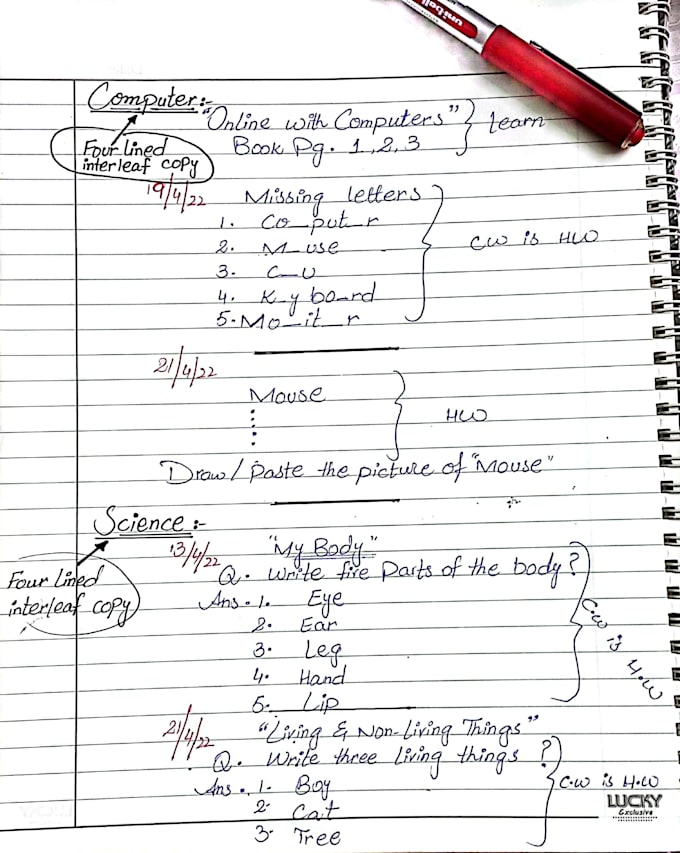 uniball
Computer:-
"Online with Computers" } learn
Book Pg. 1, 2, 3
Four lined
interleaf copy
19/4/22 Missing letters
1. Co_put_r
2. M_use
3. C_U
4. K_y bo_rd
5. Mo_it_r
CW is HW
21/4/22
Mouse
HW
Draw/Paste the picture of "Mouse"
Science:-
Four lined
interleaf copy
13/4/22 "My Body"
Q. Write five Parts of the body?
Ans. 1. Eye
2. Ear
3. Leg
4. Hand
5. Lip
C.W is H.W
21/4/22 "Living & Non-Living Things"
Q. Write three living things?
Ans. 1. Boy
2. Cat
3. Tree
C.W is H.W
LUCKY
Exclusive